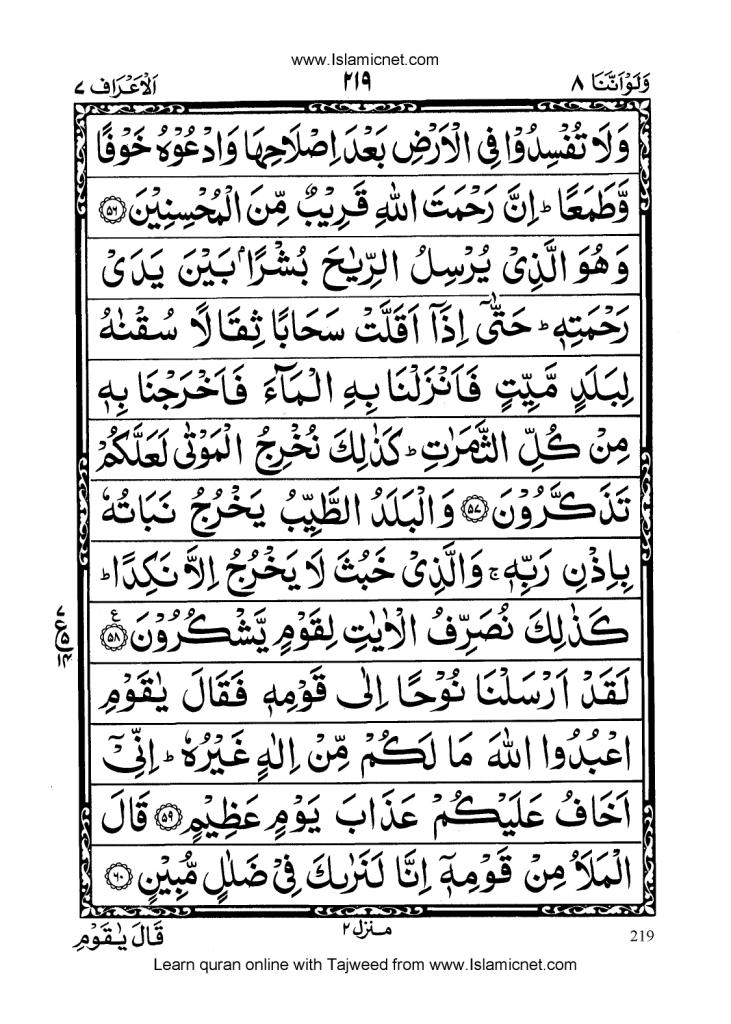 www.Islamicnet.com
وَلَوْ اَنَّنَا ٨
٢١٩
اَلْاَعْرَاف ٧
وَلَا تُفْسِدُوْا فِی الْاَرْضِ بَعْدَ اِصْلَاحِهَا وَادْعُوْهُ خَوْفًا
وَّطَمَعًا ؕ اِنَّ رَحْمَتَ اللّٰهِ قَرِیْبٌ مِّنَ الْمُحْسِنِیْنَ ۝٥٦
وَهُوَ الَّذِیْ یُرْسِلُ الرِّیٰحَ بُشْرًۢا بَیْنَ یَدَیْ
رَحْمَتِهٖ ؕ حَتّٰۤی اِذَاۤ اَقَلَّتْ سَحَابًا ثِقَالًا سُقْنٰهُ
لِبَلَدٍ مَّیِّتٍ فَاَنْزَلْنَا بِهِ الْمَآءَ فَاَخْرَجْنَا بِهٖ
مِنْ كُلِّ الثَّمَرٰتِ ؕ كَذٰلِكَ نُخْرِجُ الْمَوْتٰی لَعَلَّكُمْ
تَذَكَّرُوْنَ ۝٥٧ وَالْبَلَدُ الطَّیِّبُ یَخْرُجُ نَبَاتُهٗ
بِاِذْنِ رَبِّهٖ ۚ وَالَّذِیْ خَبُثَ لَا یَخْرُجُ اِلَّا نَكِدًا ؕ
كَذٰلِكَ نُصَرِّفُ الْاٰیٰتِ لِقَوْمٍ یَّشْكُرُوْنَ ۝٥٨ ع
٧ ع ٥ ١٤
لَقَدْ اَرْسَلْنَا نُوْحًا اِلٰی قَوْمِهٖ فَقَالَ یٰقَوْمِ
اعْبُدُوا اللّٰهَ مَا لَكُمْ مِّنْ اِلٰهٍ غَیْرُهٗ ؕ اِنِّیْۤ
اَخَافُ عَلَیْكُمْ عَذَابَ یَوْمٍ عَظِیْمٍ ۝٥٩ قَالَ
الْمَلَاُ مِنْ قَوْمِهٖۤ اِنَّا لَنَرٰىكَ فِیْ ضَلٰلٍ مُّبِیْنٍ ۝٦٠
منزل ٢
219
قَالَ یٰقَوْمِ
Learn quran online with Tajweed from www.Islamicnet.com